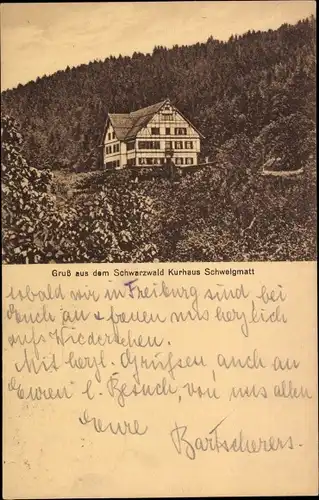 Gruß aus dem Schwarzwald Kurhaus Schweigmatt
sobald wir in Freiburg sind bei
Euch an & freuen uns herzlich
aufs Wiedersehen.
Mit herzl. Grüssen, auch an
Euren l. Besuch, von uns allen
Eure Bartscherers.